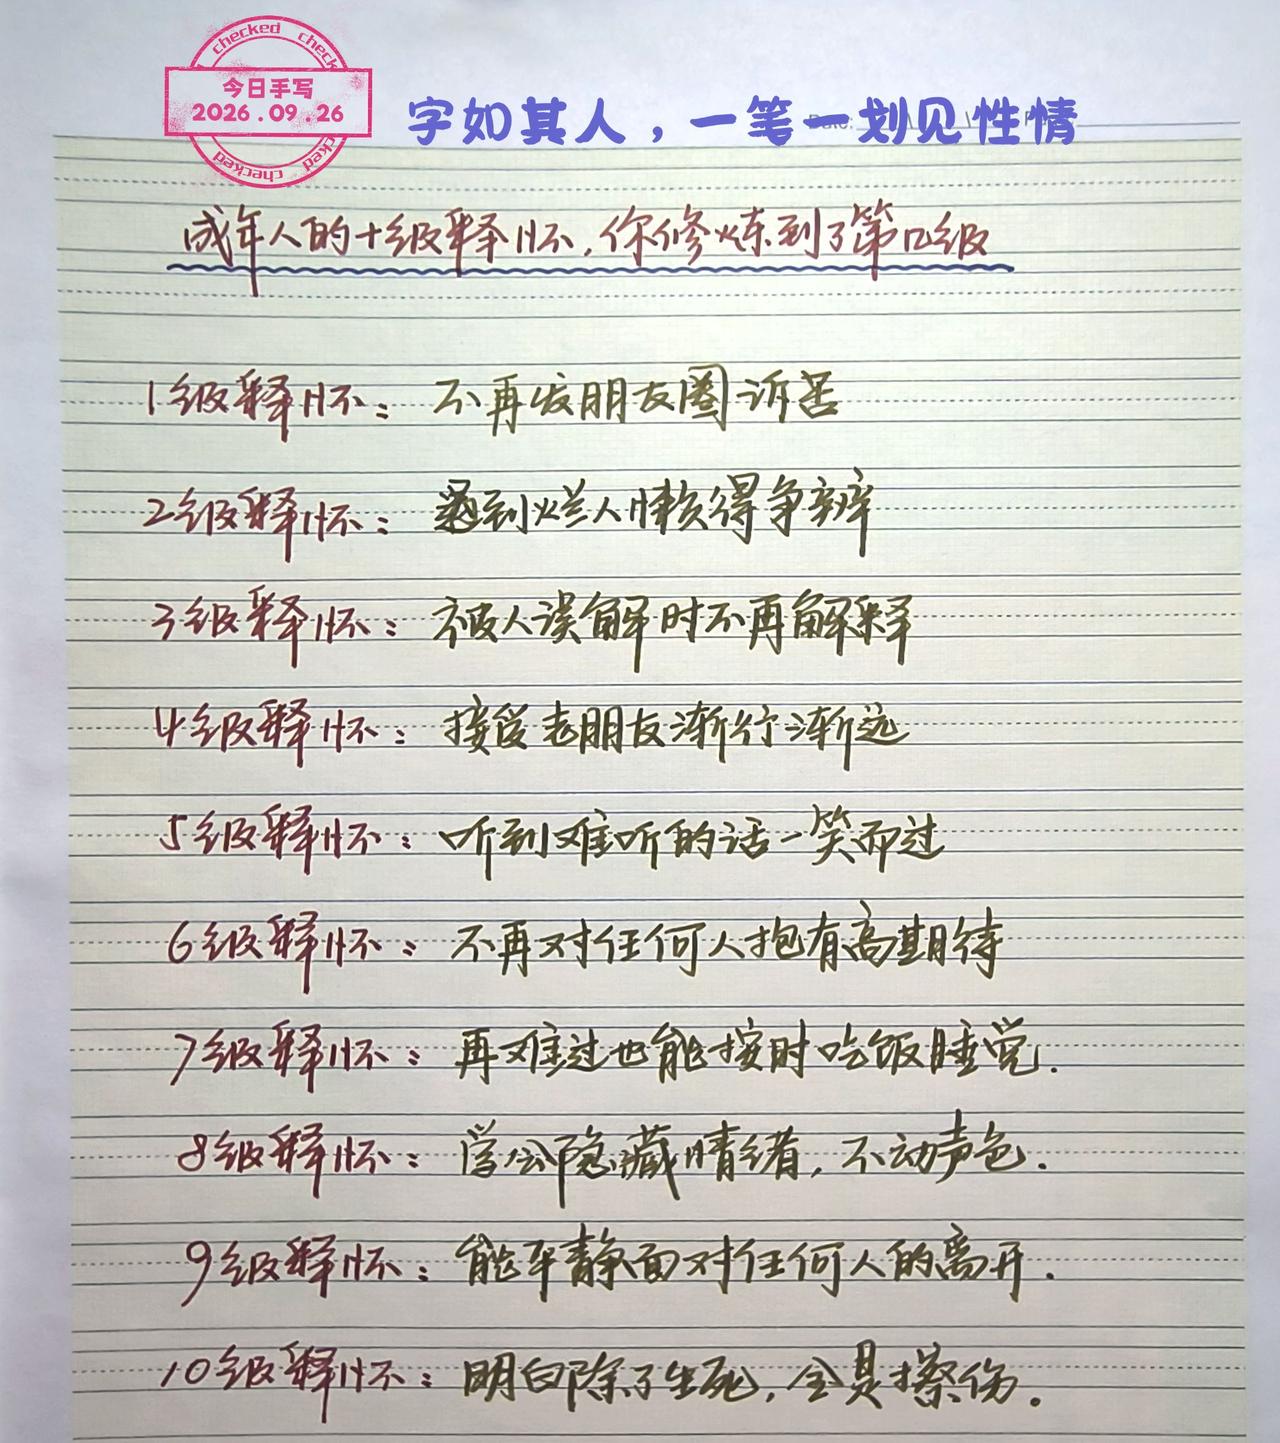 checked checked
今日手写
2026.09.26
checked checked
字如其人，一笔一划见性情
成年人的十级释怀，你修炼到了第几级
1级释怀：不再发朋友圈诉苦
2级释怀：遇到烂人懒得争辨
3级释怀：被人误解时不再解释
4级释怀：接受老朋友渐行渐远
5级释怀：听到难听的话一笑而过
6级释怀：不再对任何人抱有高期待
7级释怀：再难过也能按时吃饭睡觉.
8级释怀：学会隐藏情绪，不动声色.
9级释怀：能平静面对任何人的离开.
10级释怀：明白除了生死，全是擦伤.